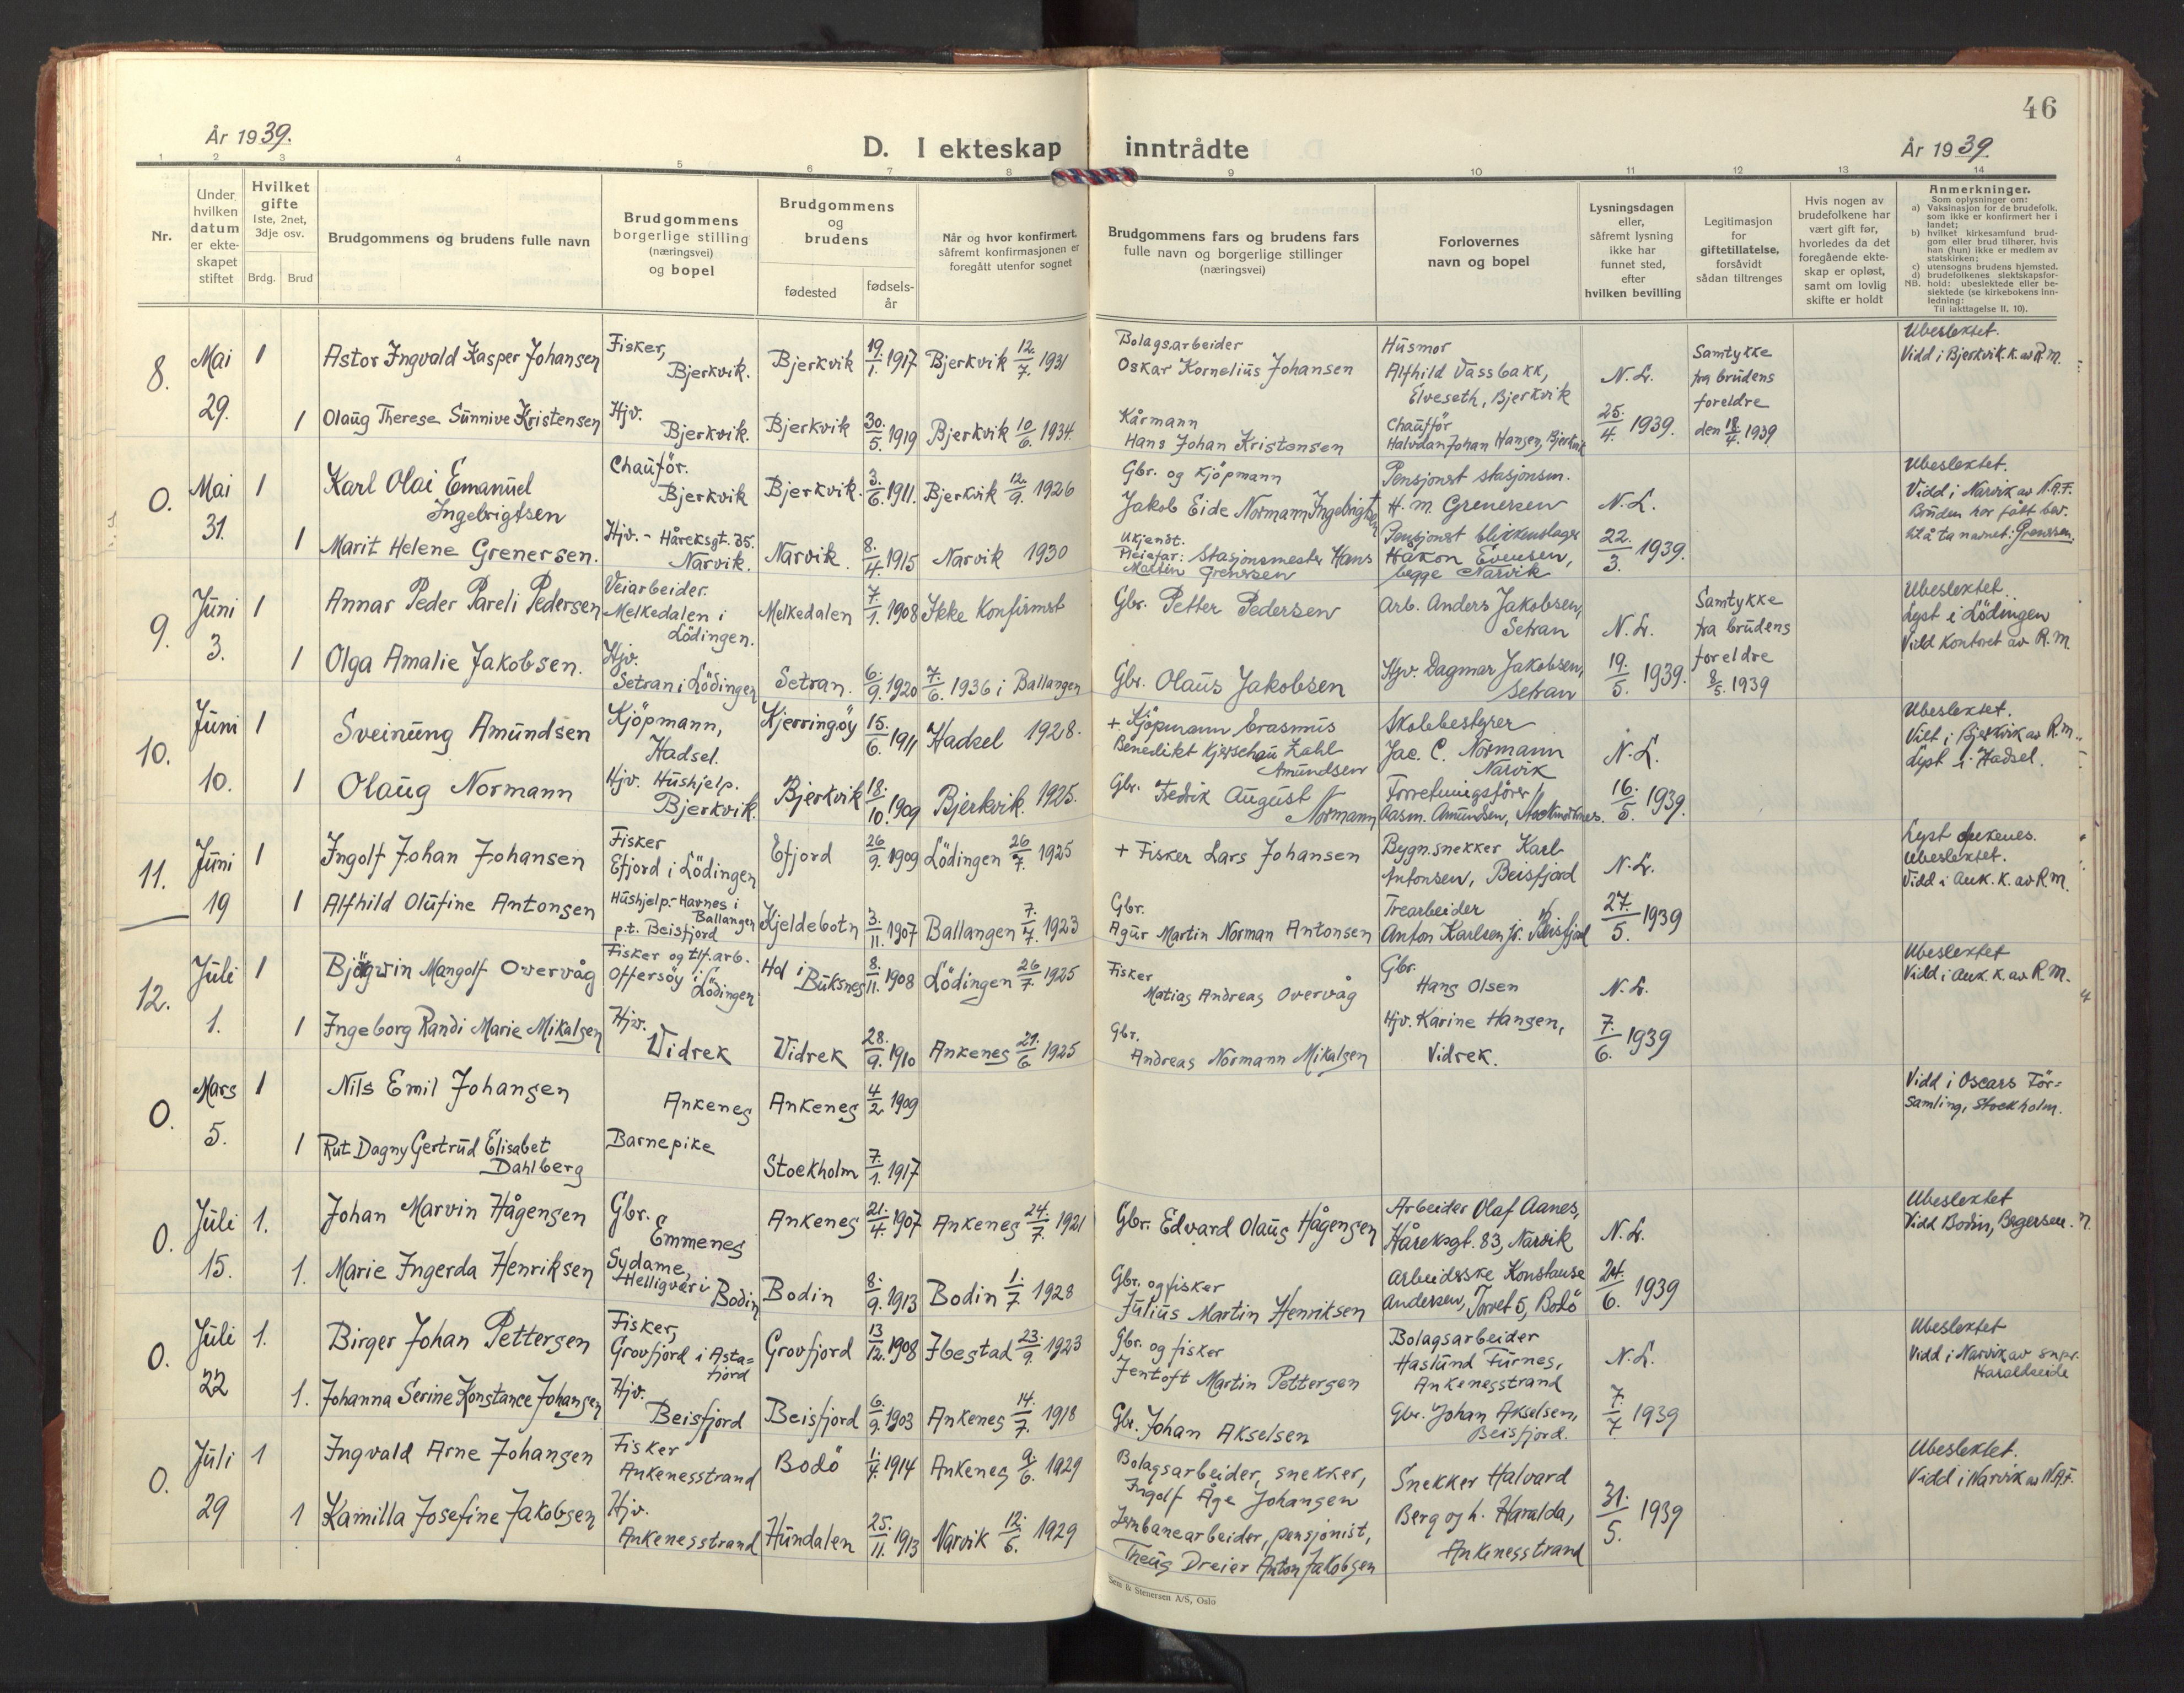 46
År 1939.
D. I ekteskap inntrådte
År 1939.
1 2 3 4 5 6 7 8 9 10 11 12 13 14
Nr.
Under hvilken datum er ekteskapet stiftet
Hvilket gifte
1ste, 2net, 3dje osv.
Brdg. Brud
Brudgommens og brudens fulle navn
Brudgommens borgerlige stilling (næringsvei) og bopel
Brudgommens og brudens
fødested
fødselsår
Når og hvor konfirmert, såfremt konfirmasjonen er foregått utenfor sognet
Brudgommens fars og brudens fars fulle navn og borgerlige stillinger (næringsvei)
Forlovernes navn og bopel
Lysningsdagen eller, såfremt lysning ikke har funnet sted, efter hvilken bevilling
Legitimasjon for giftetillatelse, forsåvidt sådan tiltrenges
Hvis nogen av brudefolkene har vært gift før, hvorledes da det foregående ekteskap er opløst, samt om lovlig skifte er holdt
Anmerkninger.
Som oplysninger om:
a) Vaksinasjon for de brudefolk, som ikke er konfirmert her i landet;
b) hvilket kirkesamfund brudgom eller brud tilhører, hvis han (hun) ikke er medlem av statskirken;
c) utensogns brudens hjemsted.
d) brudefolkenes slektskapsforhold: ubeslektede eller beslektede (se kirkebokens innledning:
NB.
Til iakttagelse II, 10).
8. Mai 29. 1 Astor Ingvald Kasper Johansen Fisker, Bjerkvik. Bjerkvik 19./1. 1917 Bjerkvik 12./7. 1931 Bolagsarbeider Oskar Kornelius Johansen Husmor Alfhild Vassbakk, Elveseth, Bjerkvik N.L. Samtykke fra brudens foreldre den 18/4. 1939 Ubeslektet. Vidd i Bjerkvik k. av R.M.
1 Olaug Therese Sunnive Kristensen Hjv. Bjerkvik. Bjerkvik 30./5. 1919 Bjerkvik 10/6. 1934. Kårmann Hans Johan Kristensen Chauför Halvdan Johan Hansen, Bjerkvik 25./4. 1939.
0. Mai 31. 1 Karl Olai Emanuel Ingebrigtsen Chauför. Bjerkvik Bjerkvik. 3./6. 1911. Bjerkvik 12./9. 1926 Gbr. og Kjöpmann Jakob Eide Normann Ingebrigtsen Pensjonert stasjonsm. H. M. Grenersen N.L. Ubeslektet. Vidd i Narvik av N.A.F. Bruden har fått bev. til å ta navnet: Grenersen.
1 Marit Helene Grenersen. Hjv. - Håreksgt. 35. Narvik. Narvik. 8./4. 1915 Narvik 1930 Ukjendt. Pleiefar: Stasjonsmester Hans Martin Grenersen Pensjonert blikkenslager Håkon Evensen, begge Narvik 22./3. 1939.
9. Juni 3. 1 Annar Peder Pareli Pedersen Veiarbeider. Melkedalen i Lödingen. Melkedalen 7./1. 1908 Ikke Konfirmert Gbr. Petter Pedersen Arb. Anders Jakobsen, Setran N.L. Samtykke fra brudens foreldre 8/5. 1939 Ubeslektet. Lyst i Lödingen Vidd Kontoret av R.M.
1 Olga Amalie Jakobsen. Hjv. Setran i Lödingen Setran. 6./9. 1920 7./6. 1936 i Ballangen Gbr. Olaus Jakobsen Hjv. Dagmar Jakobsen, Setran 19./5. 1939.
10. Juni 10. 1 Sveinung Amundsen Kjöpmann, Hadsel. Kjerringöy 15./6. 1911 Hadsel 1928. + Kjöpmann Erasmus Benedikt Kjerschau Zahl Amundsen Skolebestyrer Jac. C. Normann Narvik N.L. Ubeslektet. Vilt i Bjerkvik av R.M. Lyst i Hadsel.
1 Olaug Normann Hjv. Hushjelp. Bjerkvik. Bjerkvik 18./10. 1909 Bjerkvik. 1925. Gbr. Fredrik August Normann Forretningsförer Aasm. Amundsen, Stokmarknes. 16./5. 1939.
11. Juni 19 1 Ingolf Johan Johansen Fisker Efjord i Lödingen Efjord 26/9. 1909 Lödingen 26/7. 1925 + Fisker Lars Johansen Bygn.snekker Karl Antonsen, Beisfjord N.L. Lyst Ankenes. Ubeslektet. Vidd i Ank. K. av R.M.
1 Alfhild Olufine Antonsen Hushjelp.- Havnes i Ballangen p.t. Beisfjord Kjeldebotn 3./11. 1907 Ballangen 7./7. 1923 Gbr. Agur Martin Norman Antonsen Trearbeider Anton Karlsen jr. Beisfjord 27./5. 1939
12. Juli 1. 1 Björgvin Mangolf Overvåg Fisker og tlf.arb. Offersöy i Lödingen Hol i Buksnes 8./11. 1908 Lödingen 26/7. 1925 Fisker Matias Andreas Overvåg Gbr. Hans Olsen N.L. Ubeslektet Vidd i Ank. K. av R.M.
1 Ingeborg Randi Marie Mikalsen Hjv. Vidrek Vidrek 28./9. 1910 Ankenes 21./6 1925 Gbr. Andreas Normann Mikalsen Hjv. Karine Hansen, Vidrek. 7./6. 1939
0. Mars 5. 1 Nils Emil Johansen Ankenes Ankenes 4/2. 1909 Vidd i Oscars Församling, Stockholm.
1 Rut Dagny Gertrud Elisabet Dahlberg Barnepike Stockholm 7./1. 1917
0. Juli 15. 1. Johan Marvin Hågensen Gbr. Emmenes Ankenes 21./4. 1907 Ankenes 24./7. 1921 Gbr. Edvard Olaus Hågensen Arbeider Olaf Aanes, Håreksgt. 83, Narvik N.L. Ubeslektet Vidd Bodin,
1. Marie Ingerda Henriksen Sydame, Helligvær i Bodin Bodin 8./9. 1913 Bodin 1./7. 1928 Gbr. og fisker Julius Martin Henriksen Arbeiderske Konstanse Andersen, Torvet 5, Bodö 24./6. 1939
0. Juli 22 1. Birger Johan Pettersen Fisker, Grovfjord i Astafjord Grovfjord 13/12. 1908 Ibestad 23./9. 1923 Gbr. og fisker Jentoft Martin Pettersen Bolagsarbeider Haslund Furnes, Ankenesstrand N.L. Ubeslektet Vidd i Narvik av snpr. Haraldseide
1. Johanna Serine Konstance Johansen Hjv. Beisfjord Beisfjord 6./9. 1903 Ankenes 14./7. 1918 Gbr. Johan Akselsen Gbr. Johan Akselsen, Beisfjord. 7./7. 1939
0. Juli 29 1 Ingvald Arne Johansen Fisker Ankenesstrand Bodö 1./4. 1914 Ankenes 9./6. 1929 Bolagsarbeider, snekker, Ingolf Åge Johansen Snekker Halvard Berg og h. Haralda, Ankenesstrand 31./5. 1939 Ubeslektet. Vidd i Narvik av N.A.F.
1 Kamilla Josefine Jakobsen Hjv. Ankenesstrand Hundalen 25./11. 1913 Narvik 12./6. 1929 Jernbanearbeider, pensjonist, Theus Dreier Anton Jakobsen
Sem & Stenersen A/S, Oslo